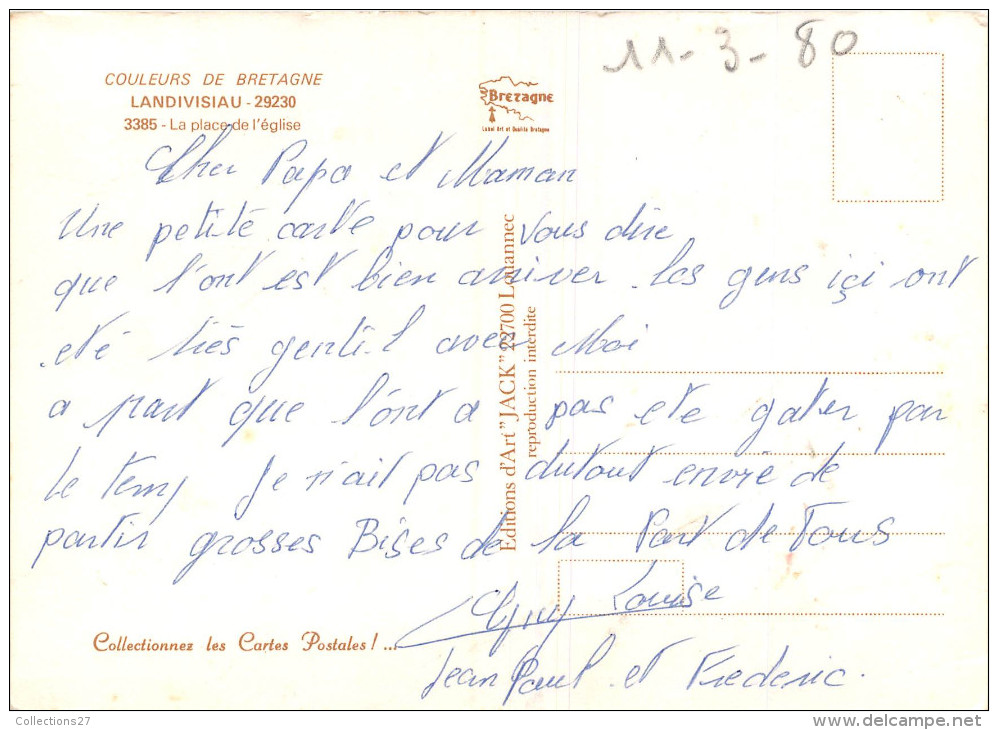 11-3-80
COULEURS DE BRETAGNE
LANDIVISIAU - 29230
3385 - La place de l'église
Brezagne
Label Art et Qualité Bretagne
Cher Papa et Maman
Une petite carte pour vous dire
que l'ont est bien arriver. Les gens içi ont
été très gentil avec Moi
a part que l'ont a pas ete gater par
Le temps Je n'ait pas dutout envie de
partir grosses Bises de la Part de Tous
Louise
Jean Paul et Frederic.
Editions d'Art "JACK" 22700 Louannec
reproduction interdite
Collectionnez les Cartes Postales ! ...
Collections27
delcampe.net